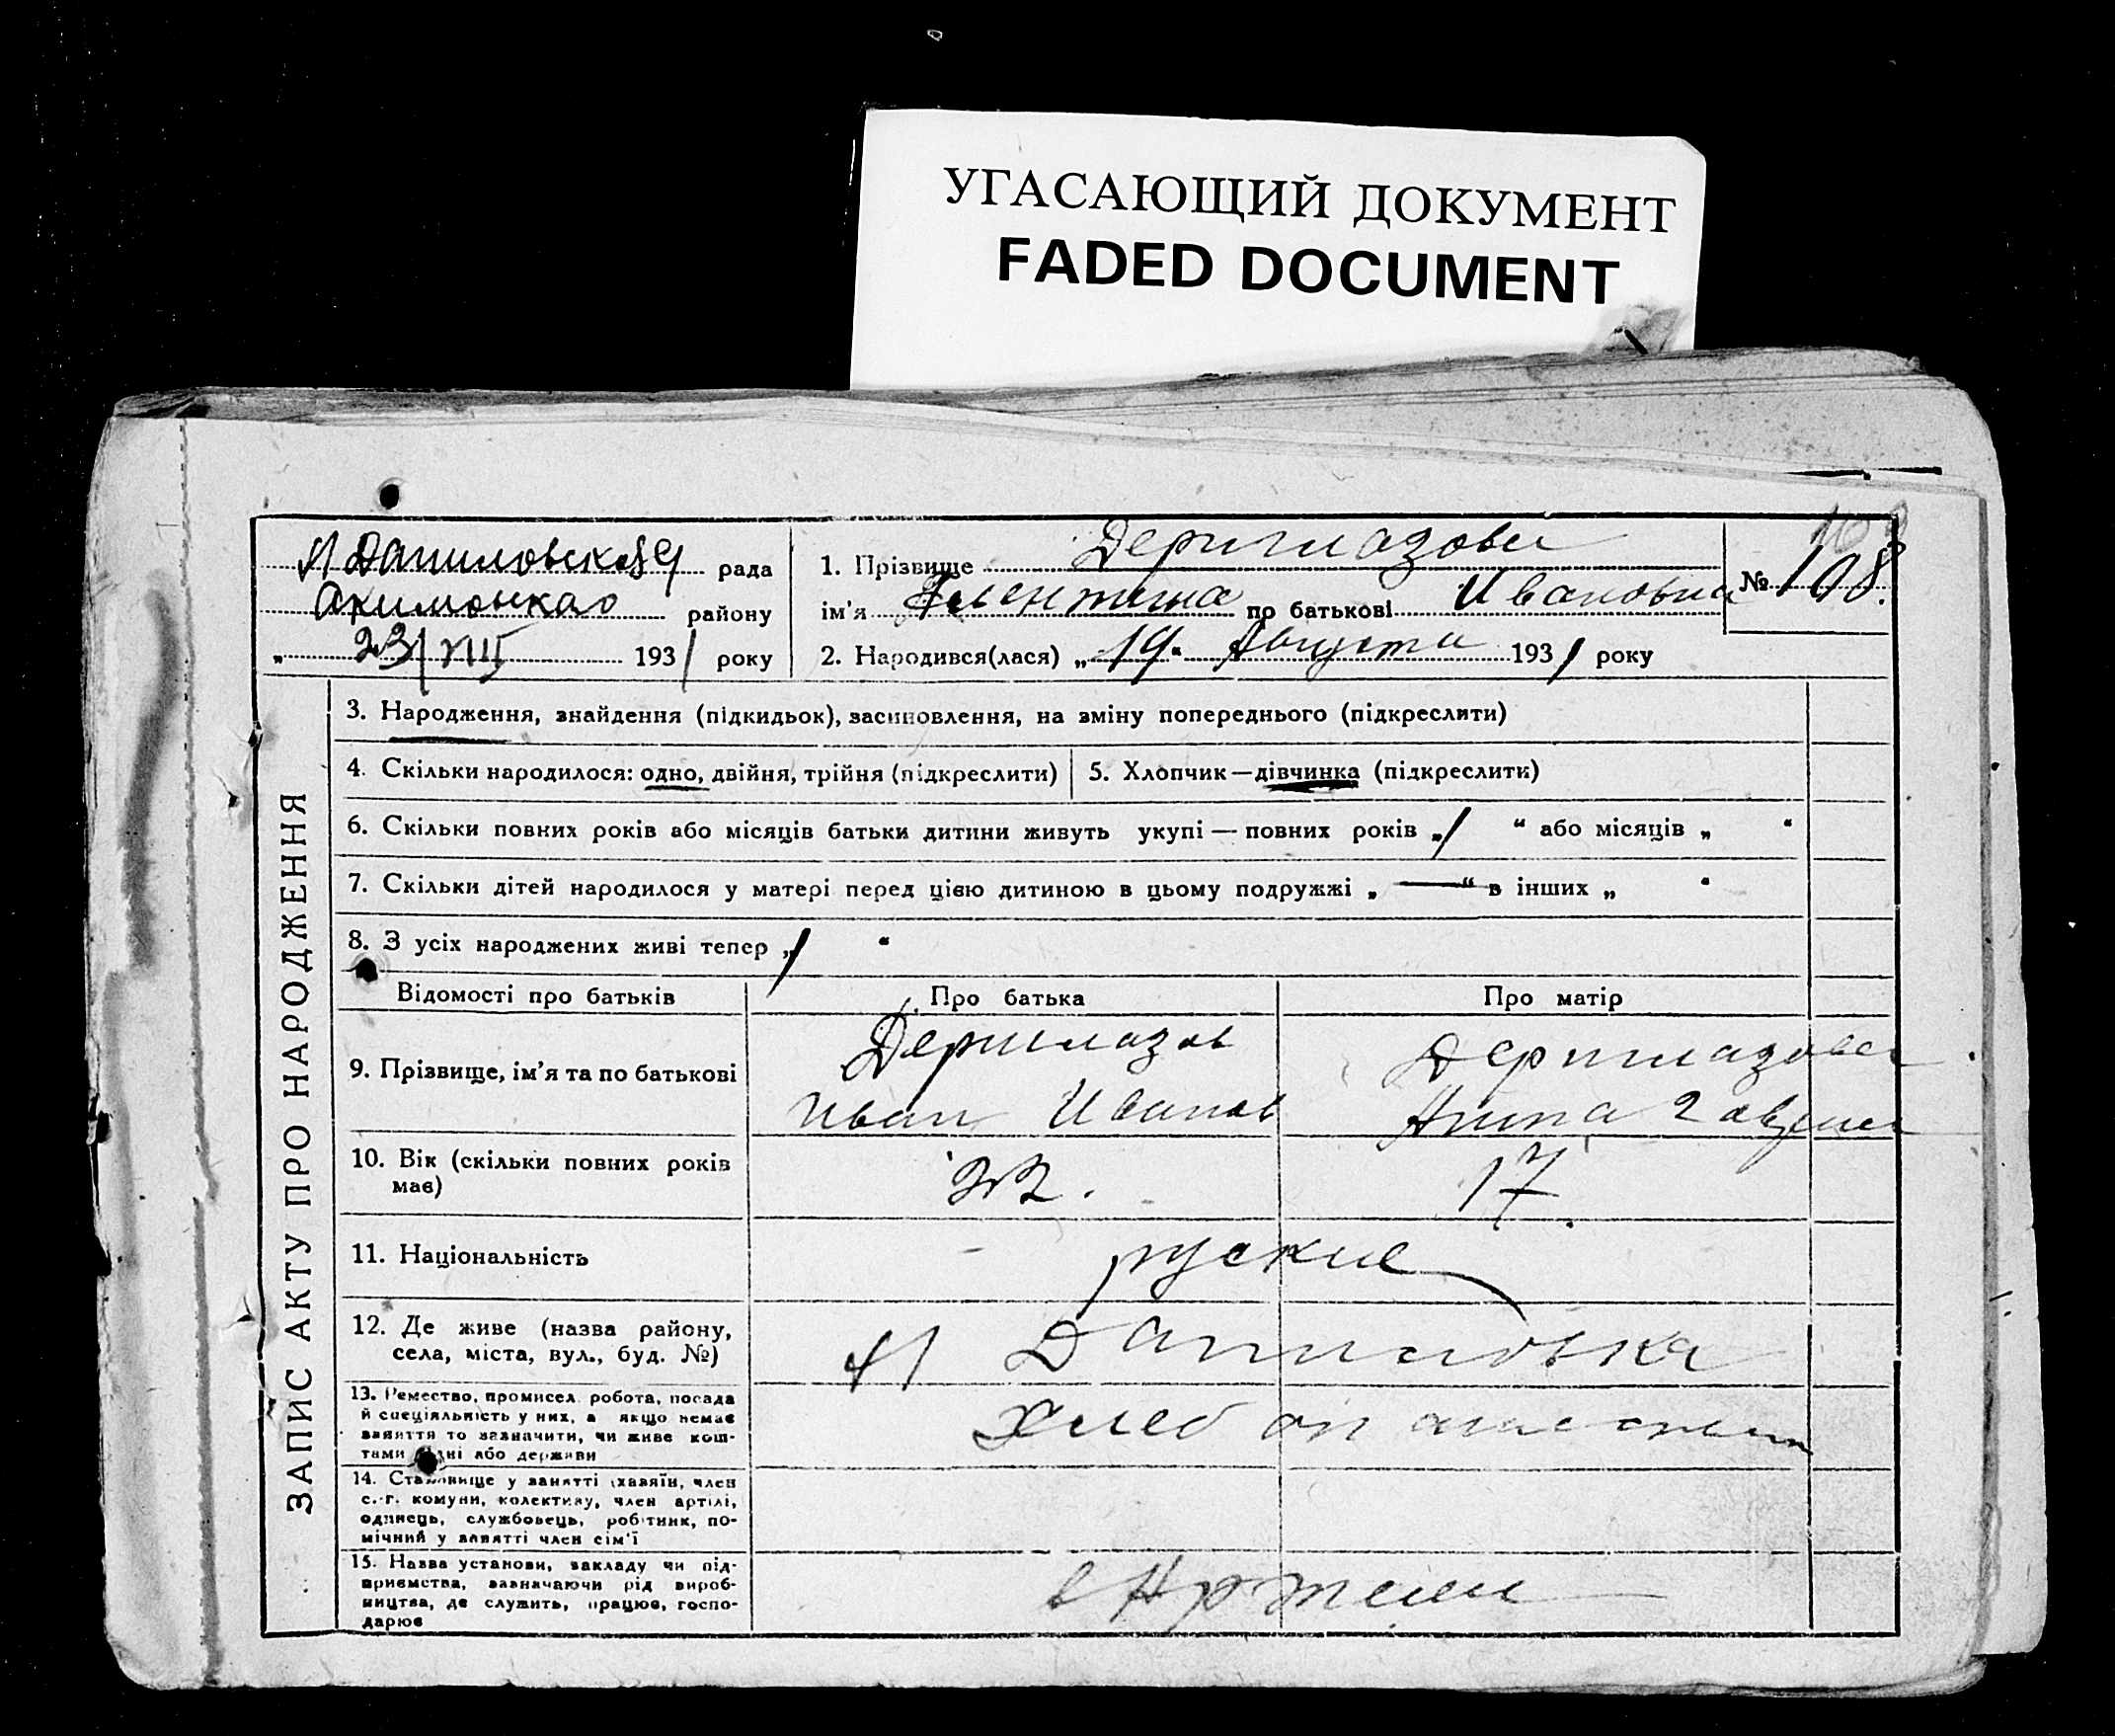 УГАСАЮЩИЙ ДОКУМЕНТ
FADED DOCUMENT
М Даниловская рада
району
23/VIII 1931 року
1. Прізвище Дериглазова
ім'я по батькові Ивановна
№ 108
2. Народився(лася) „ 19 “ Августа 1931 року
ЗАПИС АКТУ ПРО НАРОДЖЕННЯ
3. Народження, знайдення (підкидьок), засиновлення, на зміну попереднього (підкреслити)
4. Скільки народилося: одно, двійня, трійня (підкреслити)
5. Хлопчик—дівчинка (підкреслити)
6. Скільки повних років або місяців батьки дитини живуть укупі — повних років „ 1 “ або місяців „ “
7. Скільки дітей народилося у матері перед цією дитиною в цьому подружжі „ — “ в інших „ “
8. З усіх народжених живі тепер „ 1 “
Відомості про батьків
Про батька
Про матір
9. Прізвище, ім'я та по батькові
Дериглазов
Иван Иванов
Дериглазова
Анна
10. Вік (скільки повних років має)
22.
17
11. Національність
руские
12. Де живе (назва району, села, міста, вул., буд. №)
М Даниловка
13. Ремество, промисел робота, посада
й спеціяльність у них, а якщо немає
заняття то зазначити, чи живе кош-
тами рідні або держави
Хлебопашество
14. Становище у занятті (хазяїн, член
с.-г. комуни, колективу, член артілі,
одинець, службовець, робітник, по-
мічний у занятті член сім'ї
15. Назва установи, закладу чи під-
приємства, зазначаючи рід вироб-
ництва, де служить, працює, госпо-
дарює
в Артели